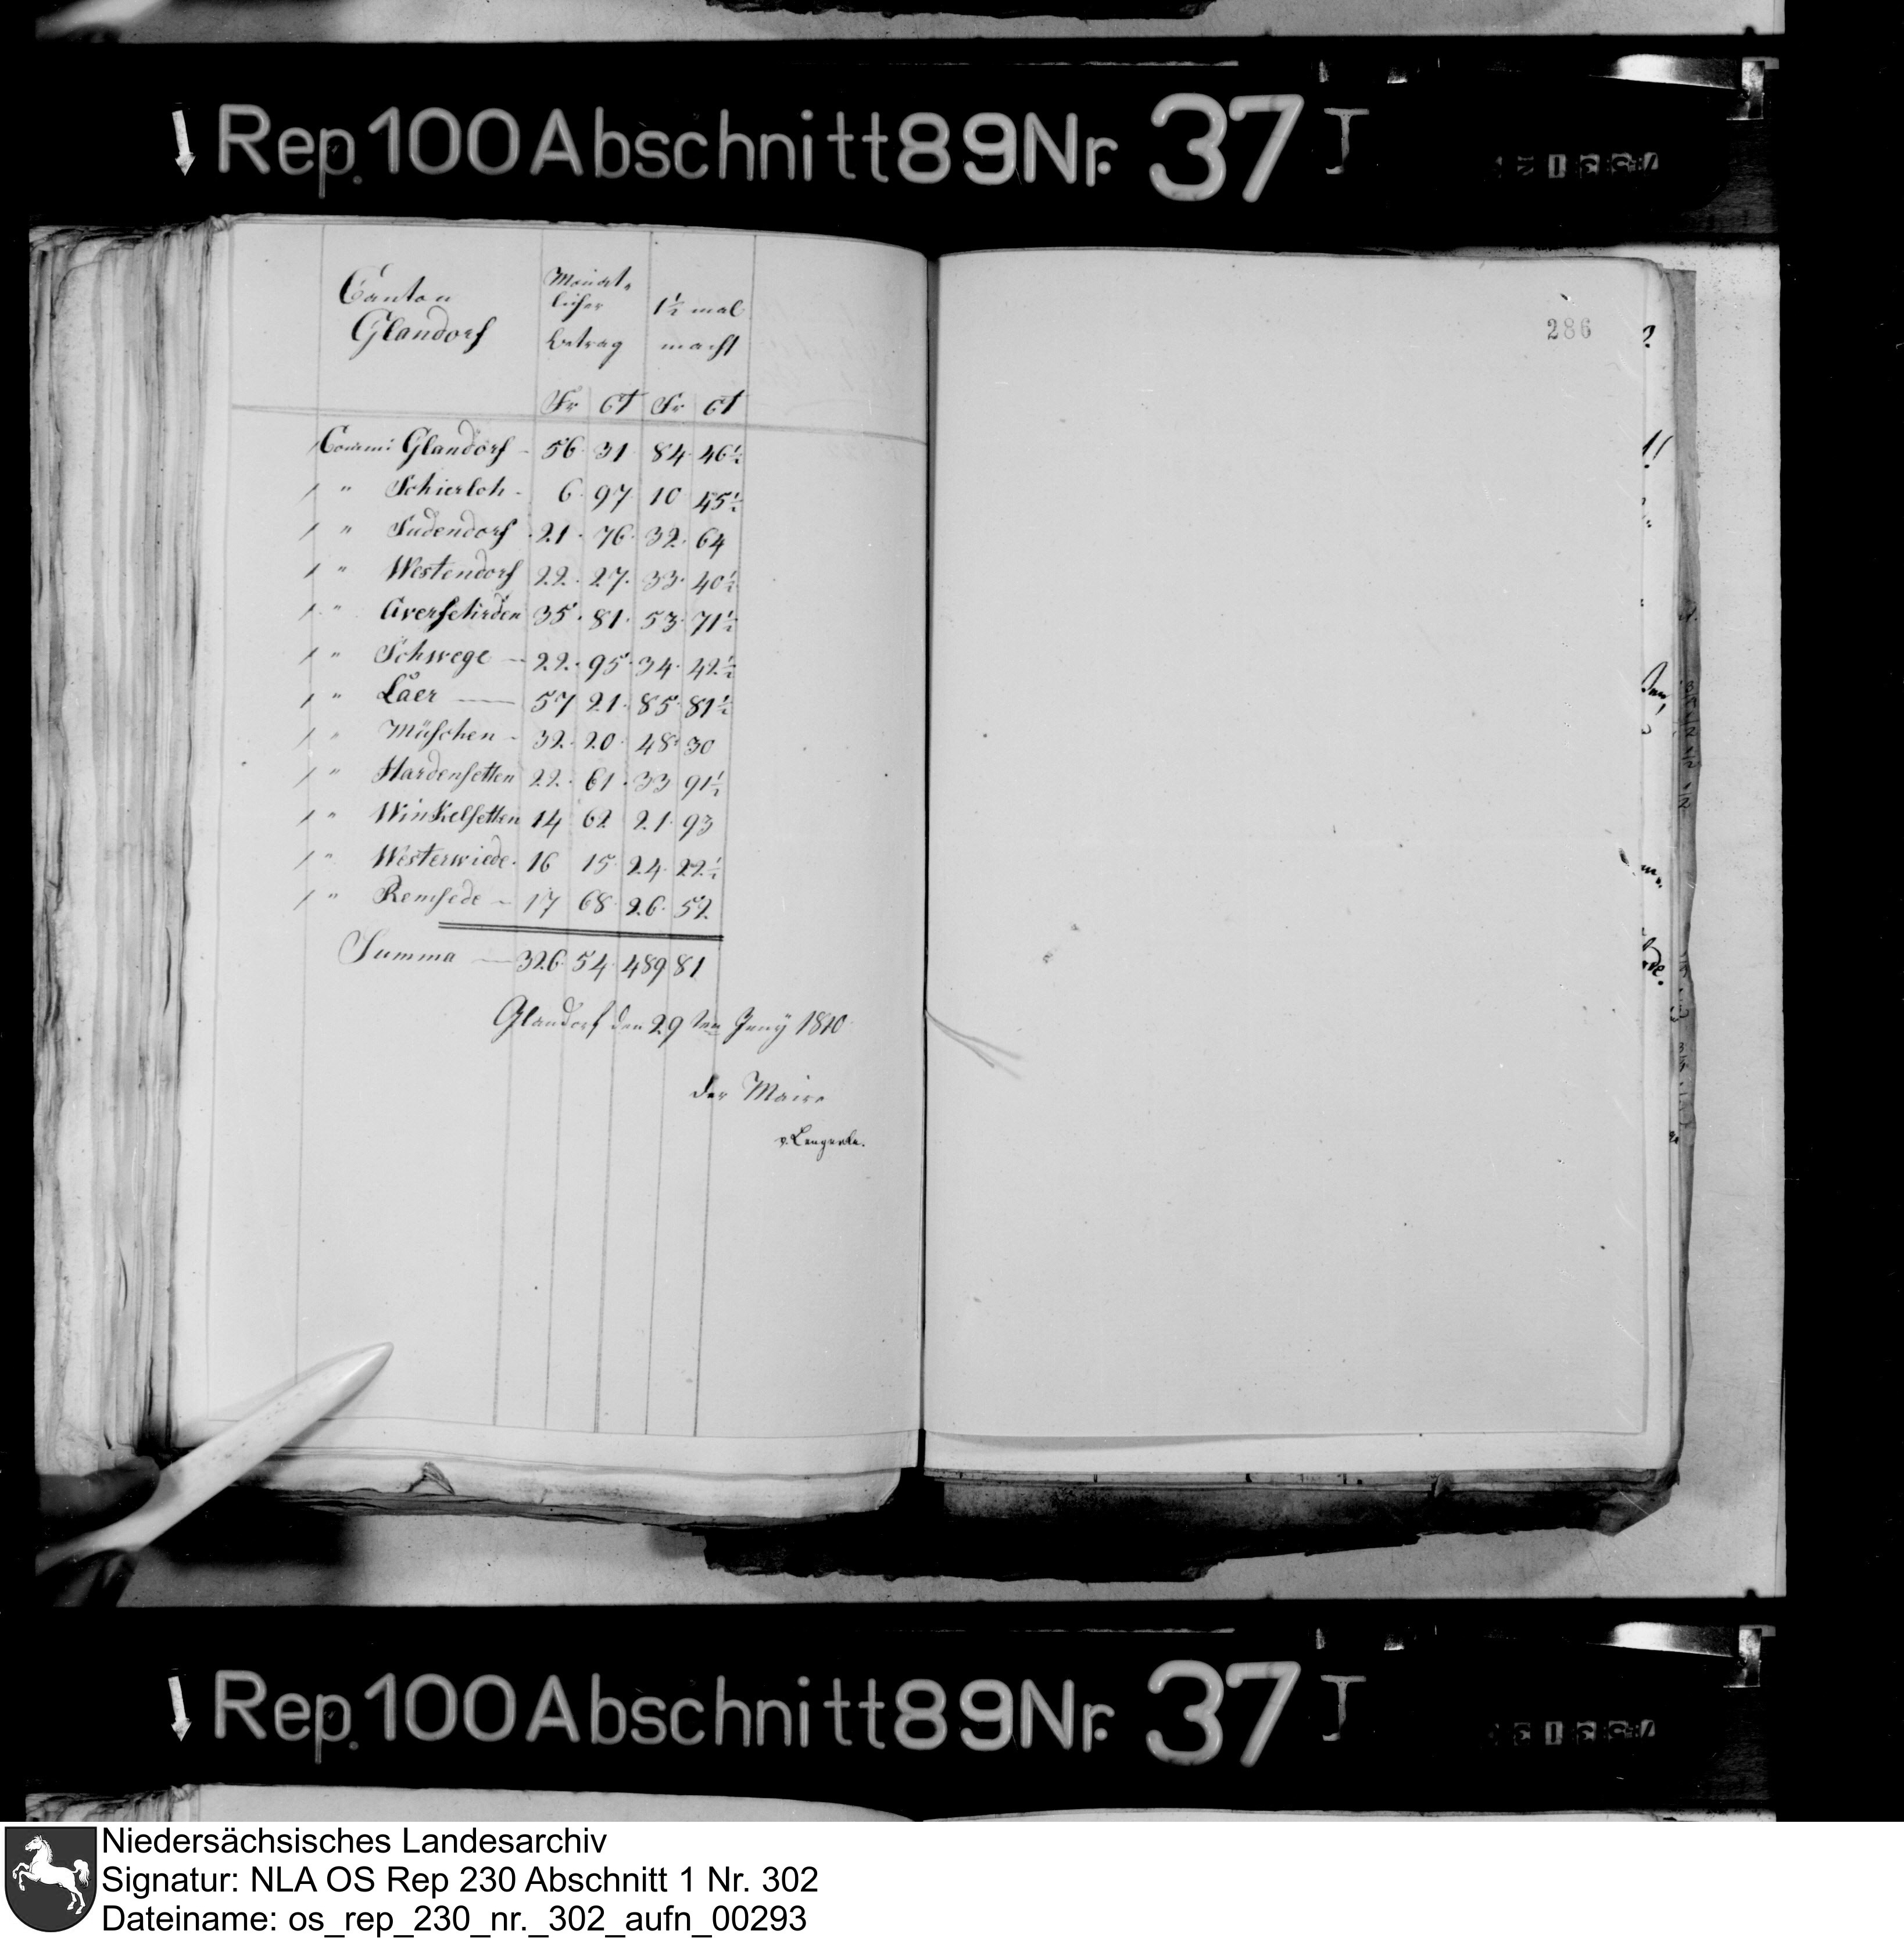 Rep. 100 Abschnitt 89 Nr. 37 I
Canton
Glandorf
Monat-
licher
Betrag
1½ mal
macht
Fr Ct Fr Ct
Comm: Glandorf - 56. 31. 84. 46½
" Schierloh - 6. 97. 10 45½
" Sudendorf . 21. 76. 32. 64
" Westendorf 22. 27. 33. 40½
" Averfehrden 35. 81. 53. 71½
" Schwege - 22. 95. 34. 42½
" Laer — 57 21. 85. 81½
" Müschen - 32. 20. 48. 30
" Hardensetten 22. 61. 33 91½
" Winkelsetten 14 62 21. 93
" Westerwiede. 16 15. 24. 22½
" Remsede - 17 68. 26. 52
Summa — 326. 54. 489 81
Glandorf den 29ten Juny 1810
der Maire
v. Lengerke.
286
Rep. 100 Abschnitt 89 Nr. 37 I
Niedersächsisches Landesarchiv
Signatur: NLA OS Rep 230 Abschnitt 1 Nr. 302
Dateiname: os_rep_230_nr._302_aufn_00293